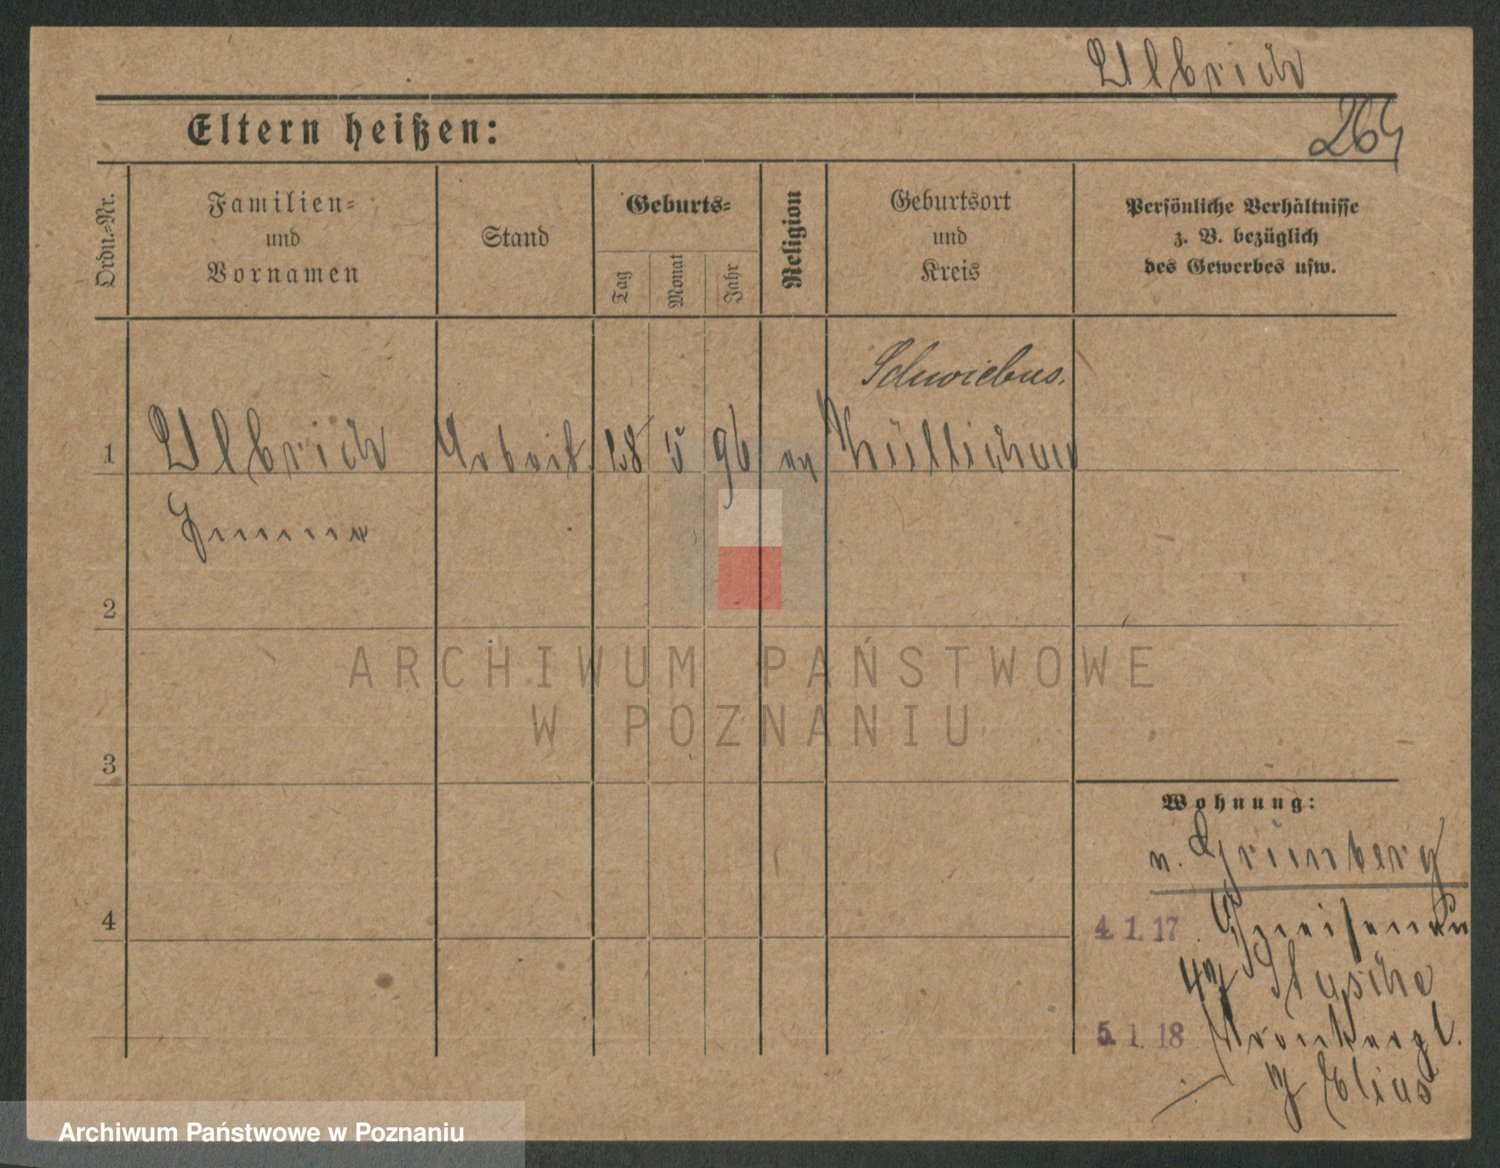 Ulbrich
Eltern heißen:
264
Ordn.-Nr.
Familien-
und
Vornamen
Stand
Geburts-
Tag
Monat
Jahr
Religion
Geburtsort
und
Kreis
Persönliche Verhältnisse
z. B. bezüglich
des Gewerbes usw.
Schwiebus.
1 Ulbrich Arbeit. 28 5 96 ev Züllichau
2
3
4
Wohnung:
v. Grünberg
4.1.17 Gneisenau
4
5.1.18
Elias
ARCHIWUM PAŃSTWOWE
W POZNANIU
Archiwum Państwowe w Poznaniu